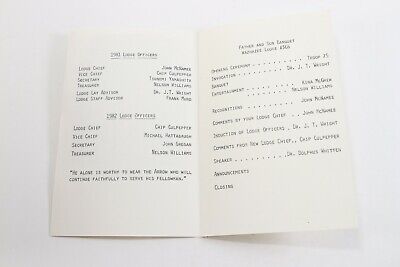 1981 Lodge Officers
Lodge Chief John McNamee
Vice Chief Chip Culpepper
Secretary Tsunemi Yamashita
Treasurer Nelson Williams
Lodge Lay Advisor Dr. J.T. Wright
Lodge Staff Advisor Frank Mond
1982 Lodge Officers
Lodge Chief Chip Culpepper
Vice Chief Michael Hattabaugh
Secretary John Grogan
Treasurer Nelson Williams
"He alone is worthy to wear the Arrow who will
continue faithfully to serve his fellowman."
Father and Son Banquet
Wachahee Lodge #366
Opening Ceremony Troop 35
Invocation Dr. J. T. Wright
Banquet
Entertainment King McGhem
Nelson Williams
Recognitions John McNamee
Comments by your Lodge Chief John McNamee
Induction of Lodge Officers Dr. J. T. Wright
Comments from New Lodge Chief Chip Culpepper
Speaker Dr. Dolphus Whitten
Announcements
Closing